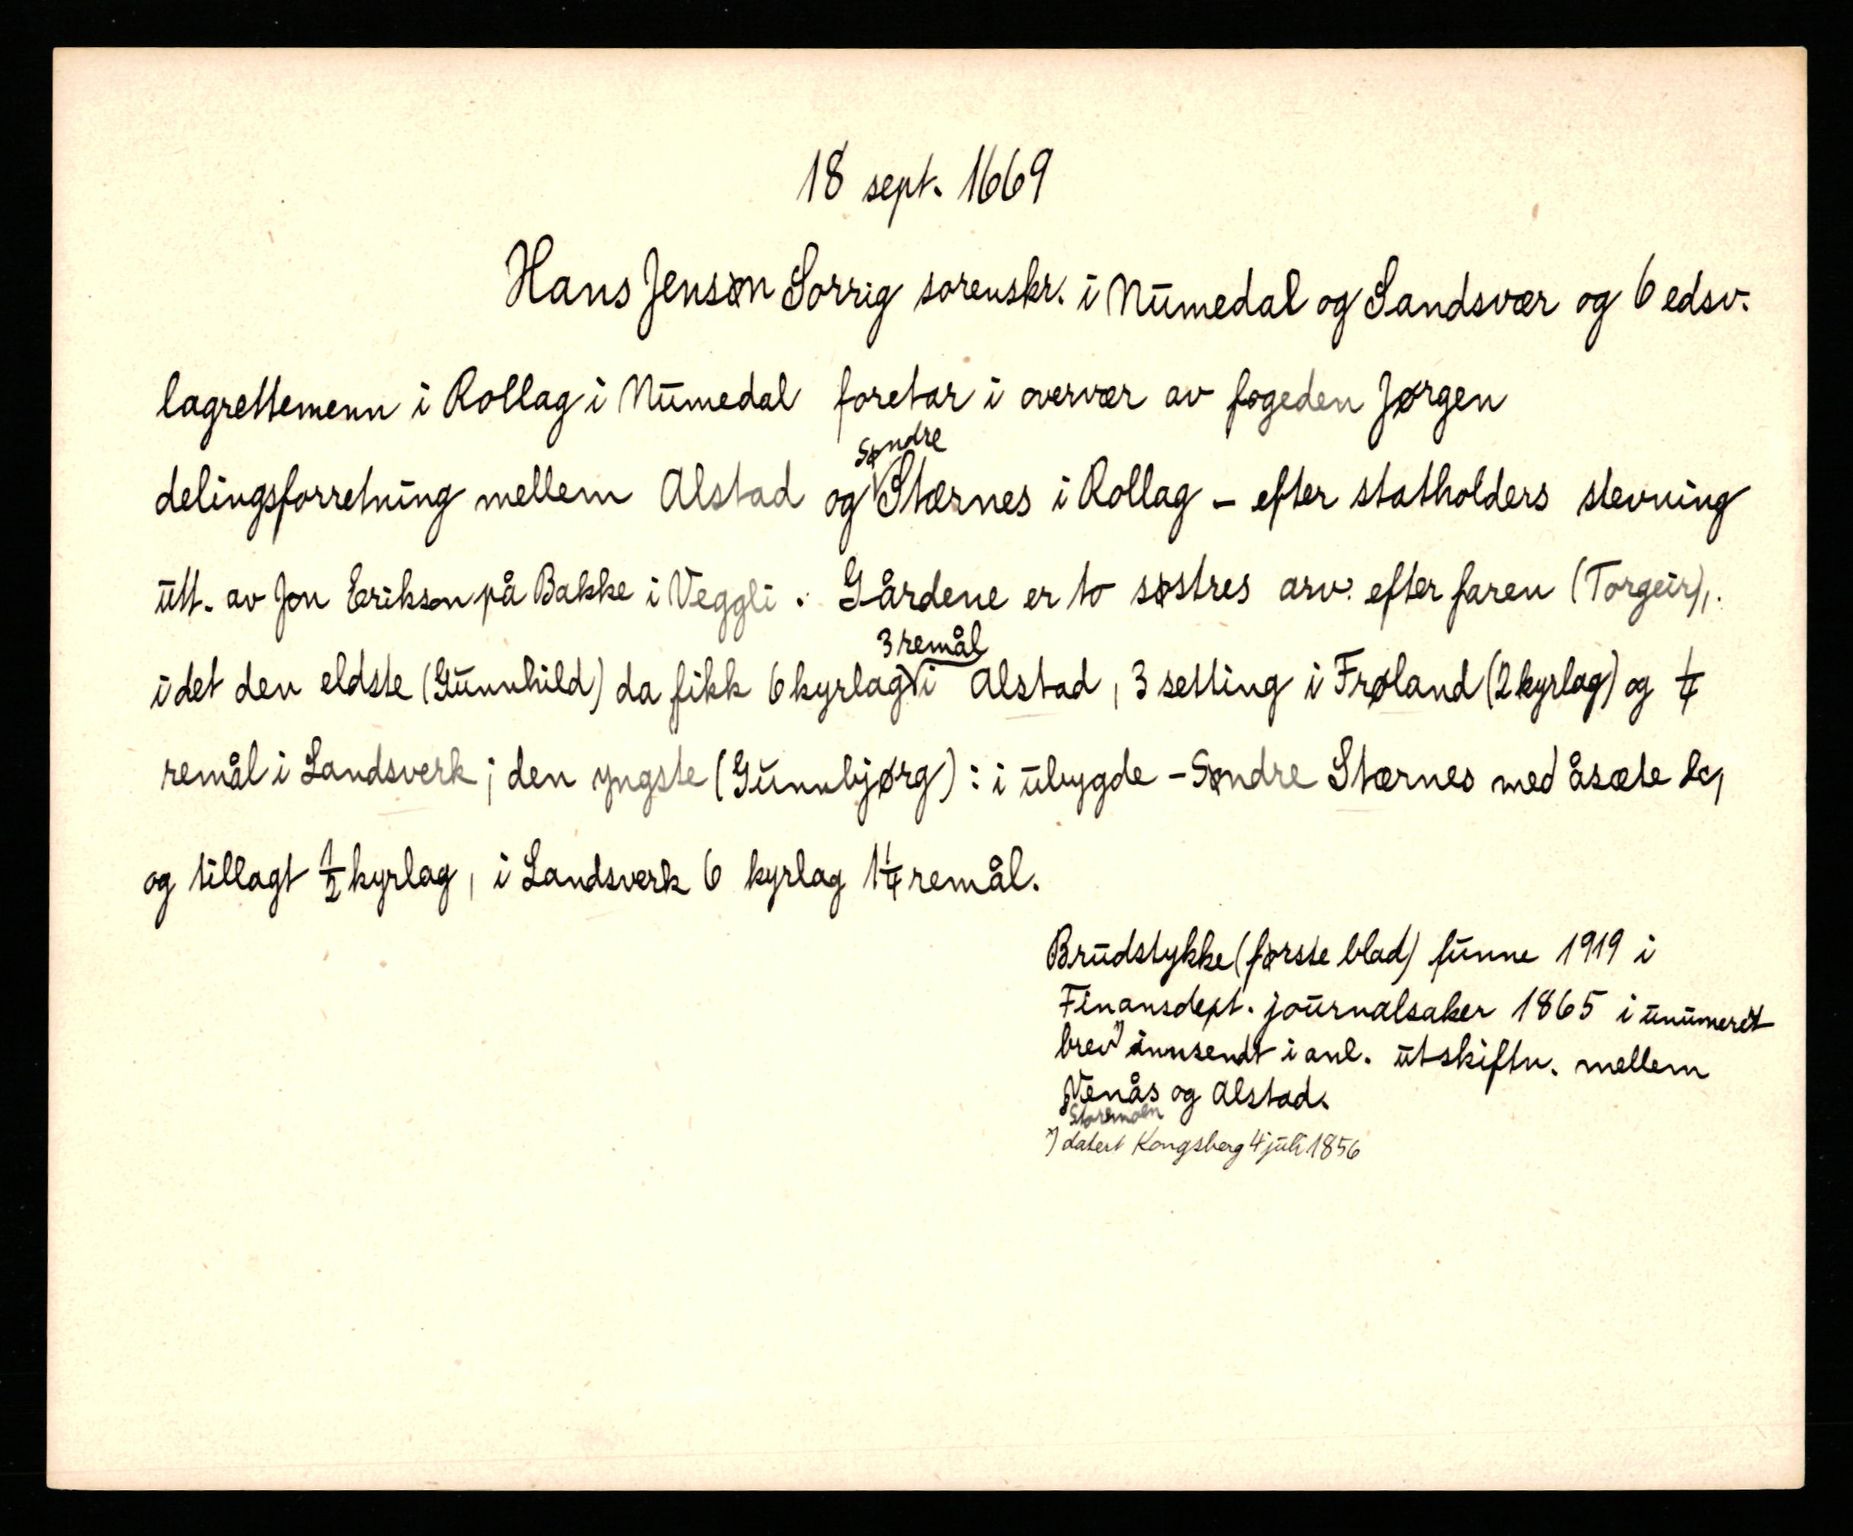 18 sept. 1669
Hans Jensøn Sorrig sorenskr. i Numedal og Sandsvær og 6 edsv.
lagrettemenn i Rollag i Numedal foretar i overvær av fogeden Jørgen
Søndre
delingsforretning mellem Alstad og Stærnes i Rollag - efter statholders stevning
utt. av Jon Erikson på Bakke i Veggli. Gårdene er to søstres arv efter faren (Torgeir),
3 remål
idet den eldste (Gunnhild) da fikk 6 kyrlag i Alstad, 3 setting i Frøland (2 kyrlag) og 1/4
remål i Landsverk; den yngste (Gunnbjørg): i ubygde - Søndre Stærnes med åsæte &c,
og tillagt 1/2 kyrlag, i Landsverk 6 kyrlag 1 1/4 remål.
Brudstykke (første blad) funne 1919 i
Finansdept. journalsaker 1865 i unumeret
brev*) innsendt i anl. utskiftn. mellem
Venås og Alstad.
Storemoen
*) datert Kongsberg 4 juli 1856